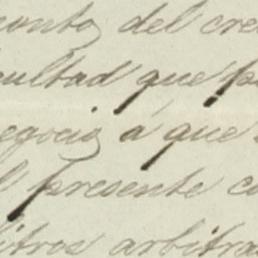 monto del cre
cultad que p
egocio á que
l presente c
itros arbitra